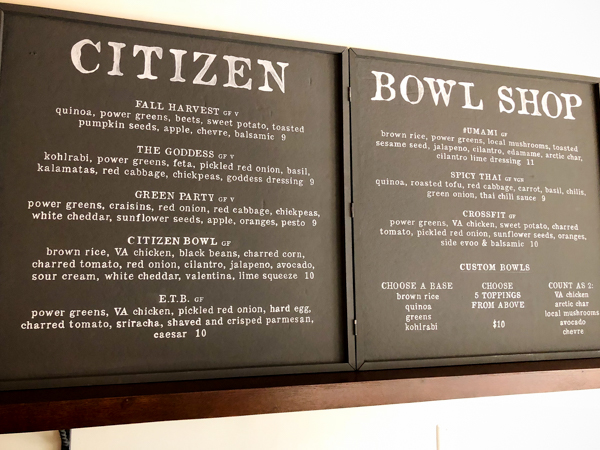 CITIZEN
FALL HARVEST GF V
quinoa, power greens, beets, sweet potato, toasted
pumpkin seeds, apple, chevre, balsamic 9
THE GODDESS GF V
kohlrabi, power greens, feta, pickled red onion, basil,
kalamatas, red cabbage, chickpeas, goddess dressing 9
GREEN PARTY GF V
power greens, craisins, red onion, red cabbage, chickpeas,
white cheddar, sunflower seeds, apple, oranges, pesto 9
CITIZEN BOWL GF
brown rice, VA chicken, black beans, charred corn,
charred tomato, red onion, cilantro, jalapeno, avocado,
sour cream, white cheddar, valentina, lime squeeze 10
E.T.B. GF
power greens, VA chicken, pickled red onion, hard egg,
charred tomato, sriracha, shaved and crisped parmesan,
caesar 10
BOWL SHOP
#UMAMI GF
brown rice, power greens, local mushrooms, toasted
sesame seed, jalapeno, cilantro, edamame, arctic char,
cilantro lime dressing 11
SPICY THAI GF VGN
quinoa, roasted tofu, red cabbage, carrot, basil, chilis,
green onion, thai chili sauce 9
CROSSFIT GF
power greens, VA chicken, sweet potato, charred
tomato, pickled red onion, sunflower seeds, oranges,
side evoo & balsamic 10
CUSTOM BOWLS
CHOOSE A BASE
brown rice
quinoa
greens
kohlrabi
CHOOSE
5 TOPPINGS
FROM ABOVE
$10
COUNT AS 2:
VA chicken
arctic char
local mushrooms
avocado
chevre